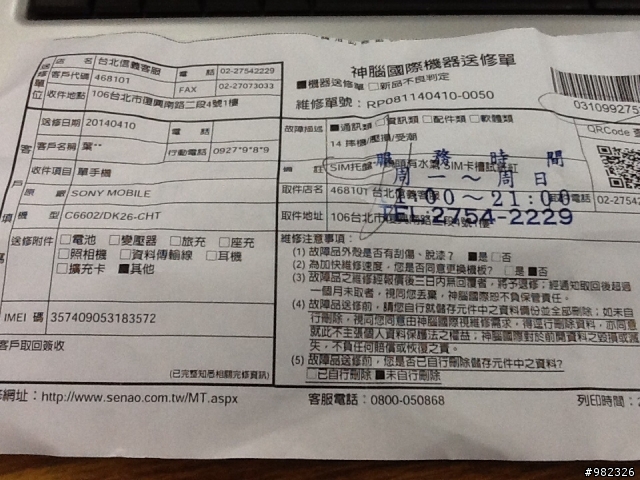 神腦國際機器送修單
■機器送修單 □新品不良判定
維修單號：RP081140410-0050
0310992753
QRCode
送修單位
店名 台北信義客服 電話 02-27542229
客戶代碼 468101 FAX 02-27073033
收件地點 106台北市復興南路二段4號1樓
送修日期 20140410 電話
客戶名稱 葉** 行動電話 0927*9*8*9
收件項目 單手機
原廠 SONY MOBILE
機型 C6602/DK26-CHT
送修附件 □電池 □變壓器 □旅充 □座充
□照相機 □資料傳輸線 □耳機
□擴充卡 ■其他
IMEI 碼 357409053183572
客戶取回簽收
(已完整知悉相關完修資訊)
故障描述 ■通訊類 □資訊類 □配件類 □軟體類
14 摔機/壓損/受潮
備註 SIM托盤
服務時間
周一～周日
11:00～21:00
TEL:2754-2229
取件店名 468101 台北信義客服 02-2754
取件地址 106台北市復興南路二段4號1樓
維修注意事項：
(1) 故障品外殼是否有刮傷、脫漆? ■是 □否
(2) 為加快維修速度，您是否同意更換機板? □是 ■否
(3) 故障品之維修經報價後三日內無回覆者，將予退修；經通知取回後超過
一個月未取者，視同您丟棄，神腦國際恕不負保管責任。
(4) 故障品送修前，請您自行就儲存元件中之資料備份並全部刪除；如未自
行刪除，視同您同意由神腦國際視維修需求，得逕行刪除資料，亦同意
就此不主張個人資料保護法之權益；神腦國際對於前開資料之毀損或滅
失，不負任何賠償或恢復之責。
(5) 故障品送修前，您是否已自行刪除儲存元件中之資料?
□已自行刪除 ■未自行刪除
網址：http://www.senao.com.tw/MT.aspx 客服電話：0800-050868 列印時間：2
#982326